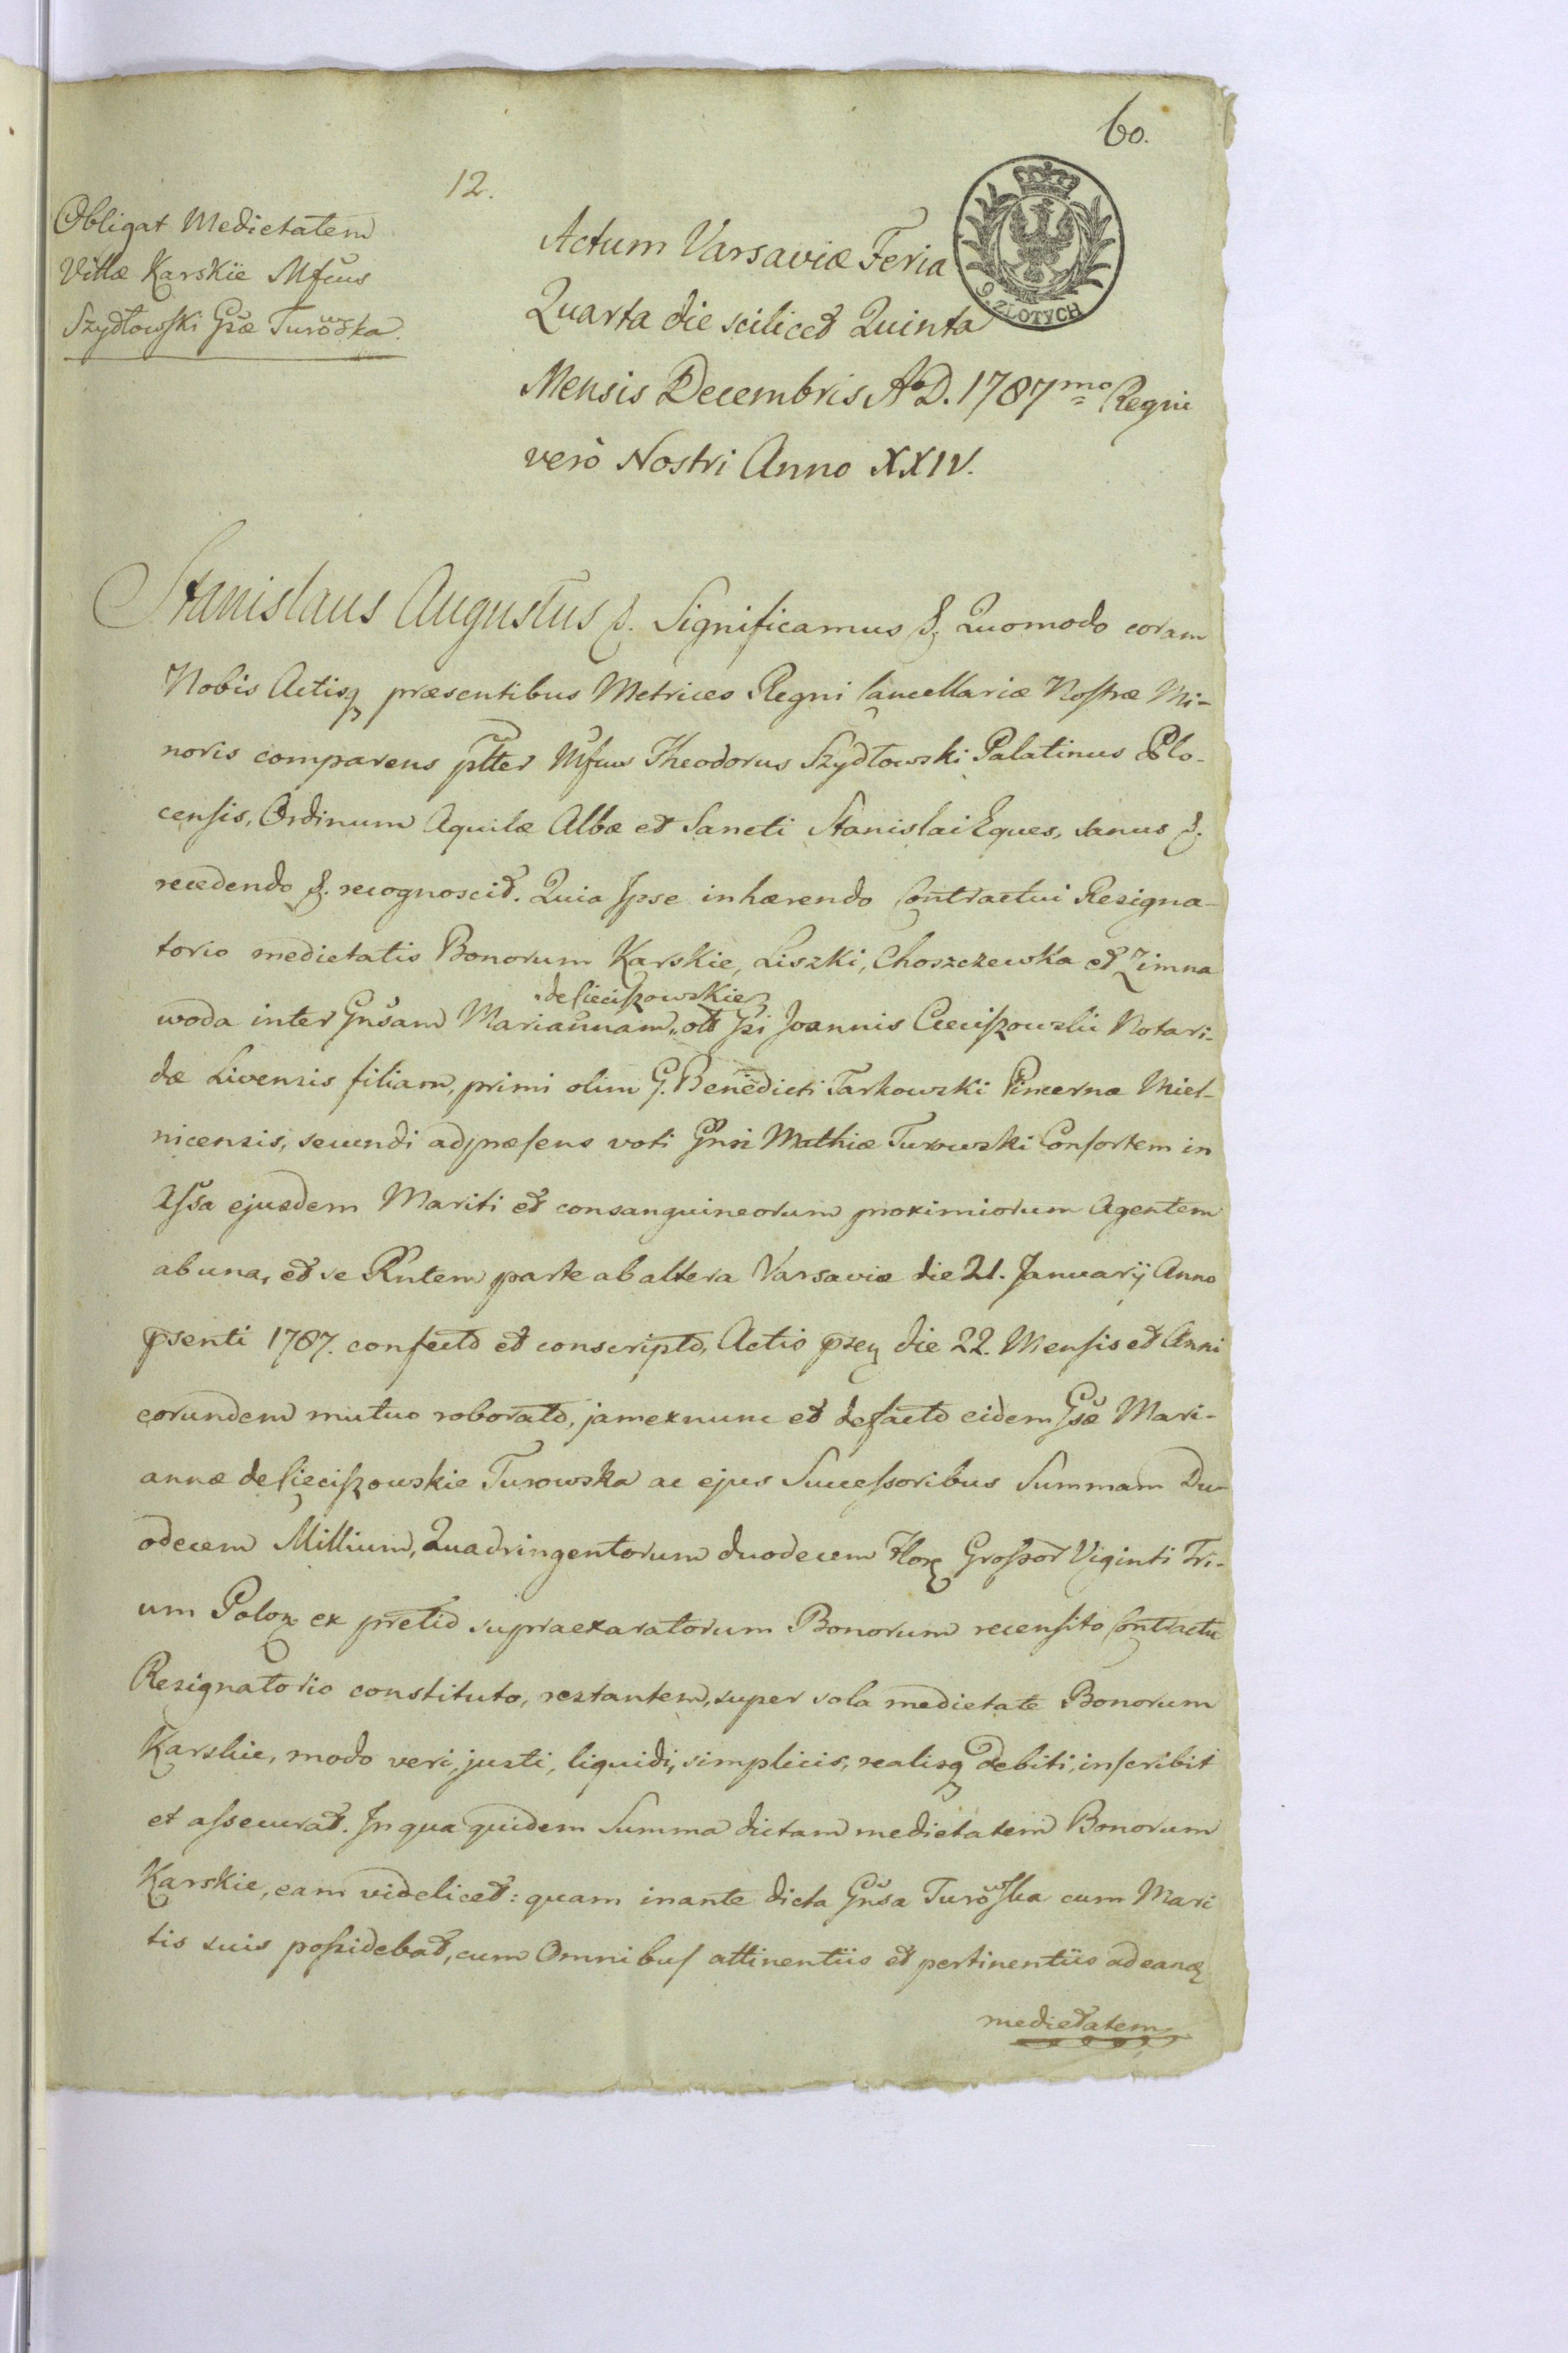 60.
12.
Obligat Medietatem
Villæ Karskie Mfcus
Szydłowski Gsæ Turowska.
9 ZŁOTYCH
Actum Varsaviæ Feria
Quarta die scilicet Quinta
Mensis Decembris A°D. 1787mo Regni
verò Nostri Anno XXIV.
Stanislaus Augustus &. Significamus &. Quomodo coram
Nobis Actisq præsentibus Metrices Regni Cancellariæ Nostræ Mi-
noris comparens pltter Mfcus Theodorus Szydłowski Palatinus Plo-
censis, Ordinum Aquilæ Albæ et Sancti Stanislai Eques, sanus &.
recedendo &. recognoscit. Quia Ipse inhærendo Contractui Resigna-
torio medietatis Bonorum Karskie, Liszki, Choszczewka et Zimna
woda inter Gnsam Mariannam, de Cieciszowskie, olt Gsi Joannis Cieciszowski Notari-
dæ Livensis filiam, primi olim G. Benedicti Tarkowski Pincernæ Miel-
nicensis, secundi ad præsens voti Gnsi Mathiæ Turowski Consortem in
Assa ejusdem Mariti et consanguineorum proximiorum Agentem
ab una, et se Rntem parte ab altera Varsaviæ die 21. Januarij Anno
psenti 1787. confecto et conscripto, Actis pseq die 22. Mensis et Anni
eorundem mutuo roborato, jam ex nunc et de facto eidem Gsæ Mari-
annæ de Cieciszowskie Turowska ac ejus Successoribus Summam Du-
odecem Millium, Quadringentorum duodecem Flor Grossor Viginti Tri-
um Polon ex pretio supraexaratorum Bonorum recensito Contractu
Resignatorio constituto, restantem, super sola medietate Bonorum
Karskie, modo veri, justi, liquidi, simplicis, realisq debiti, inscribit
et assecurat. In qua quidem Summa dictam medietatem Bonorum
Karskie, eam videlicet: quam in ante dicta Gnsa Turowska cum Mari
tis suis possidebat, cum Omnibus attinentiis et pertinentiis ad eand
medietatem